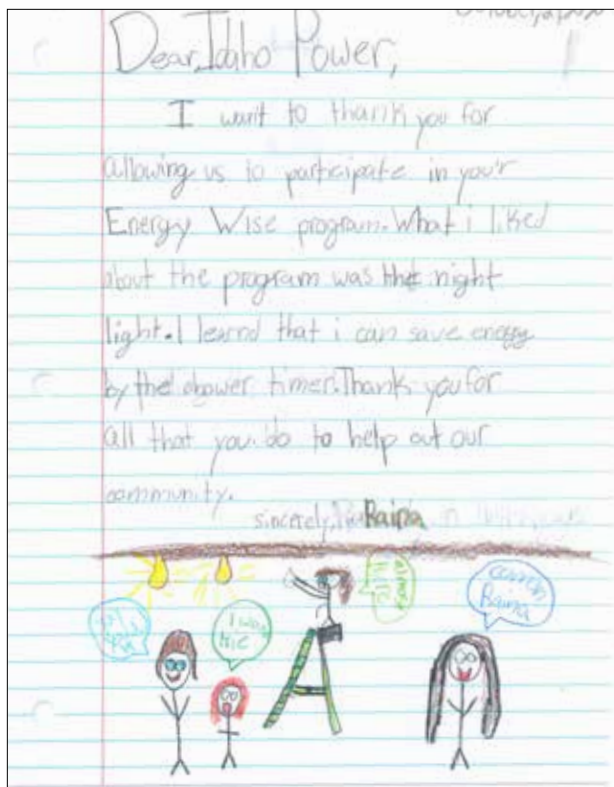 Dear, Idaho Power,
I want to thank you for
allowing us to participate in you'r
Energy Wise program. What i liked
about the program was the night
light. I learnd that i can save energy
by the shower timer. Thank you for
all that you do to help out our
community.
sincerely, Raina
almost there
common Raina
I want